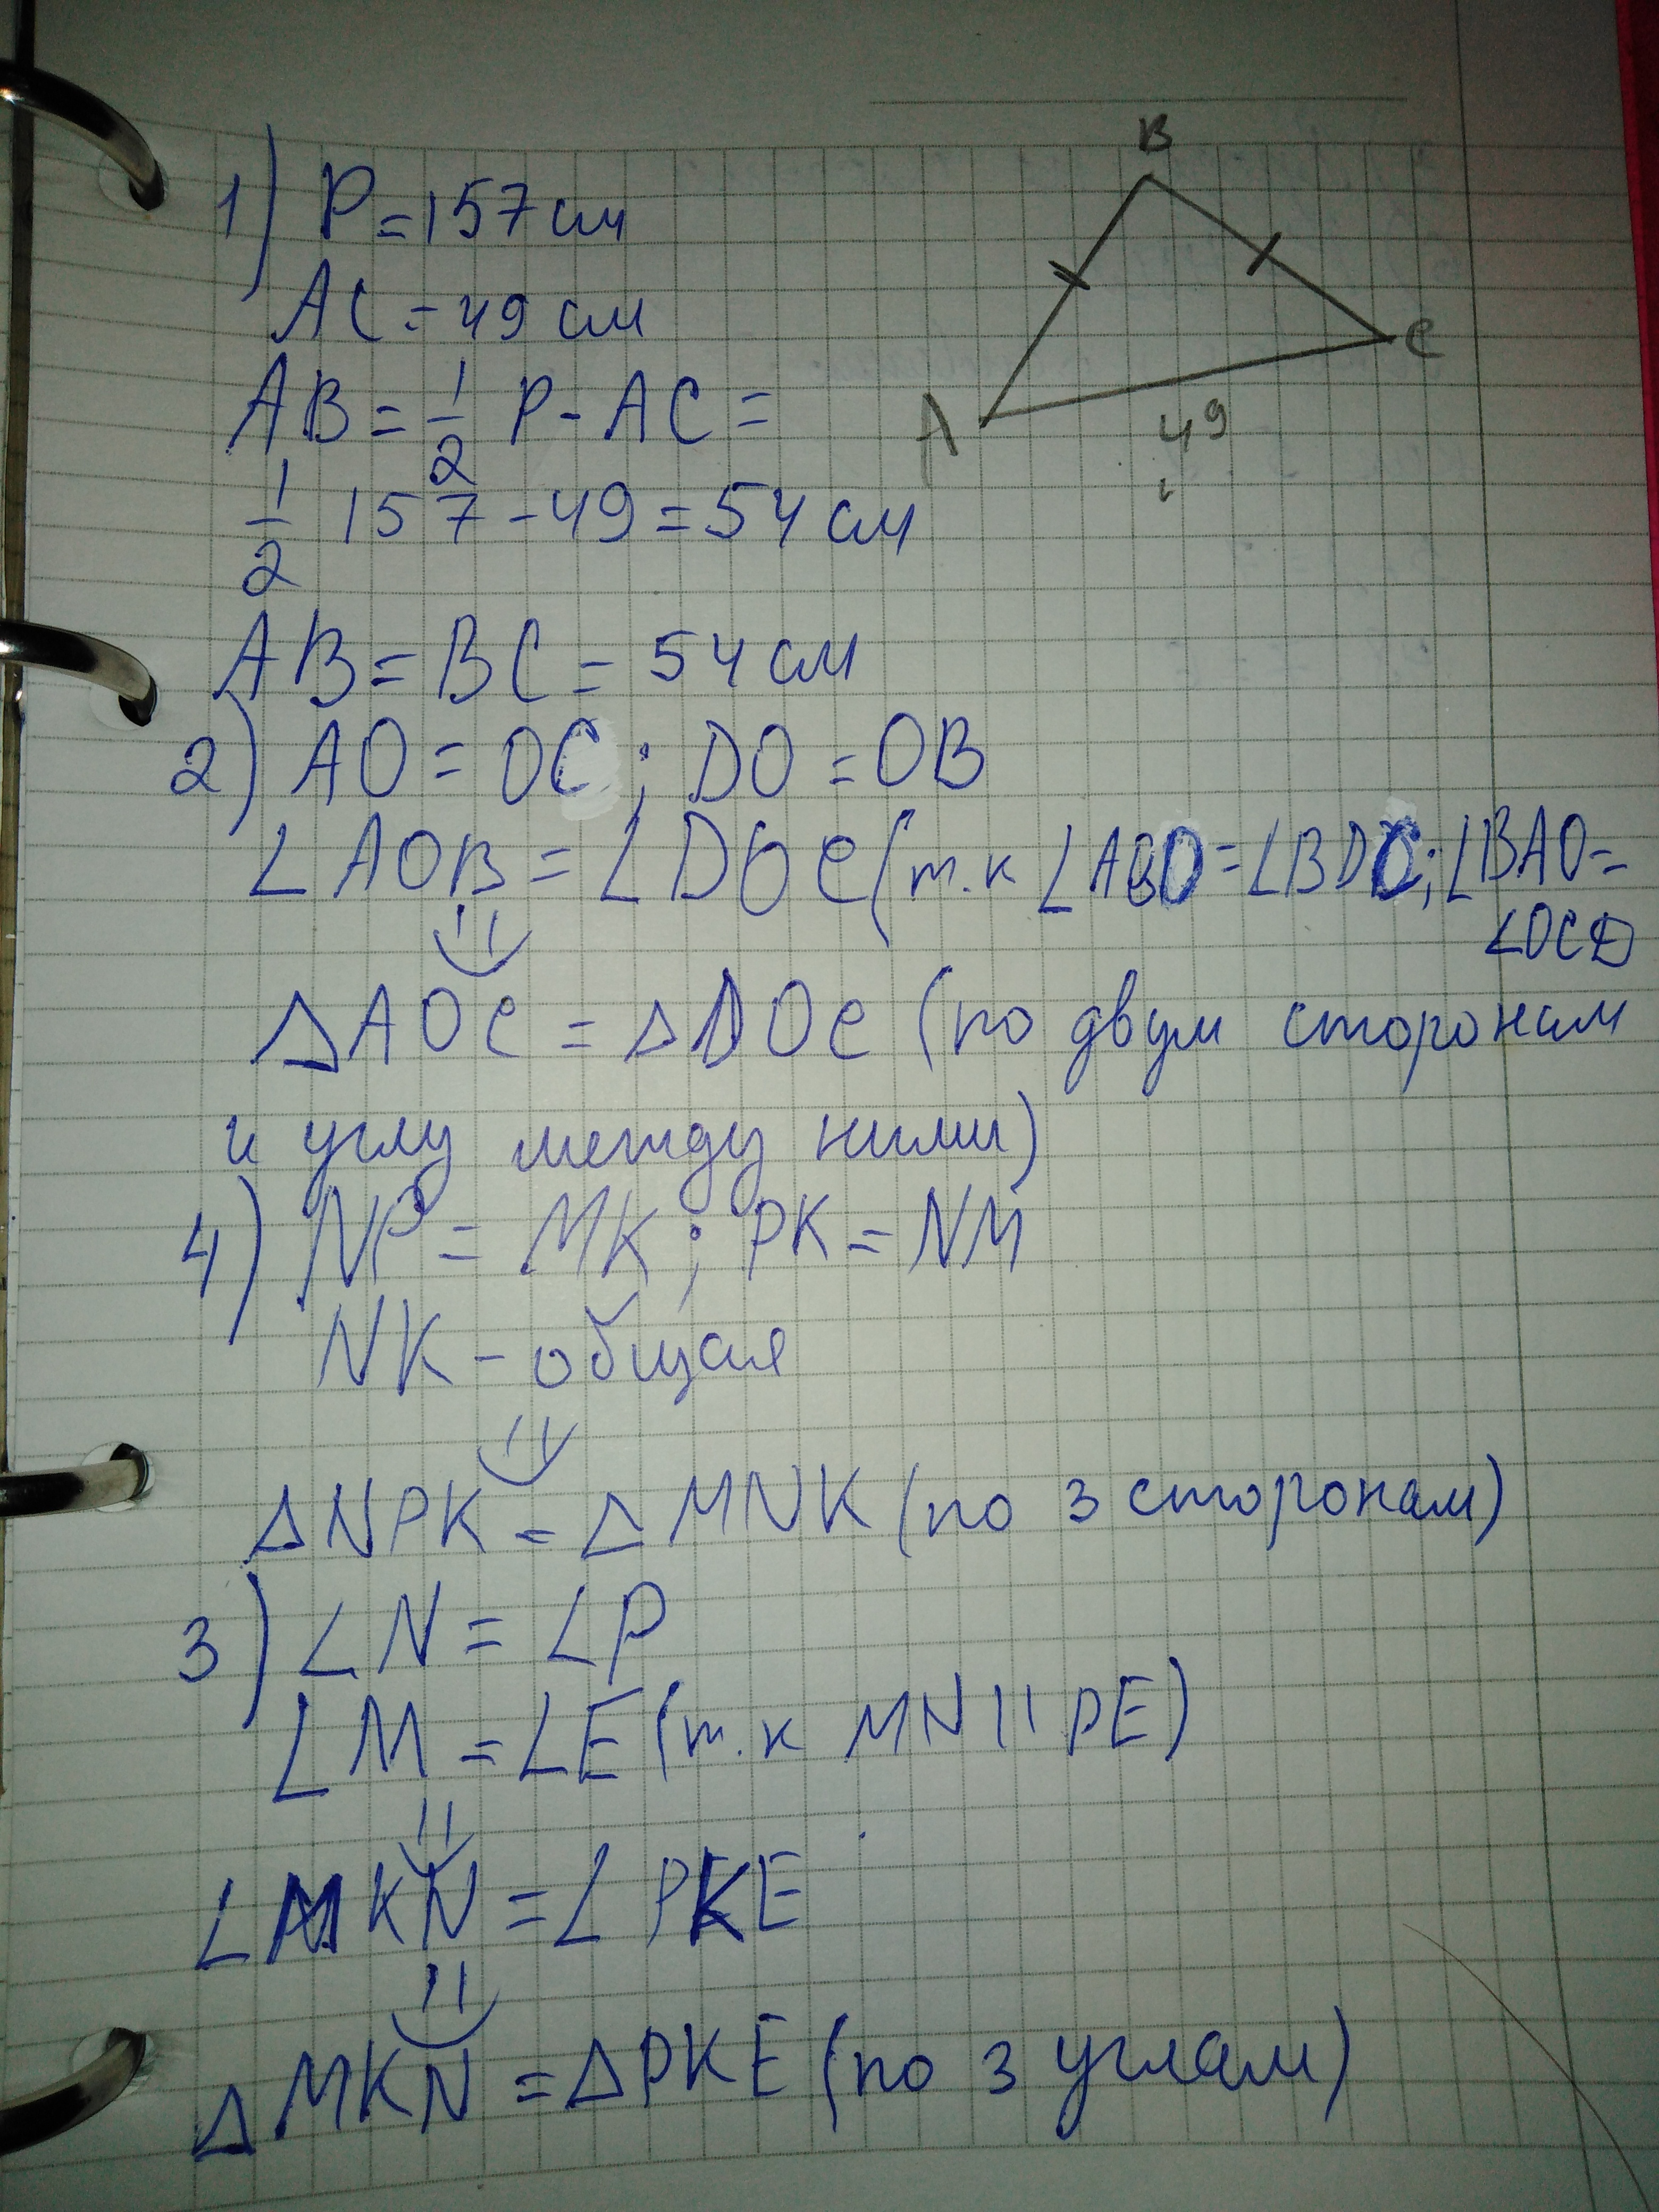 1) P=157 см
AC=49 см
AB=1/2 P-AC=
1/2 157-49=54 см
AB=BC=54 см
B
C
A
49
2) AO=OC; DO=OB
∠AOB=∠DOC(т.к ∠ABO=∠BDC;∠BAO=
∠OCD
△AOC=△DOC (по двум сторонам
и углу между ними)
4) NP=MK; PK=NM
NK-общая
△NPK=△MNK (по 3 сторонам)
3) ∠N=∠P
∠M=∠E(т.к MN||PE)
∠MKN=∠PKE
△MKN=△PKE (по 3 углам)